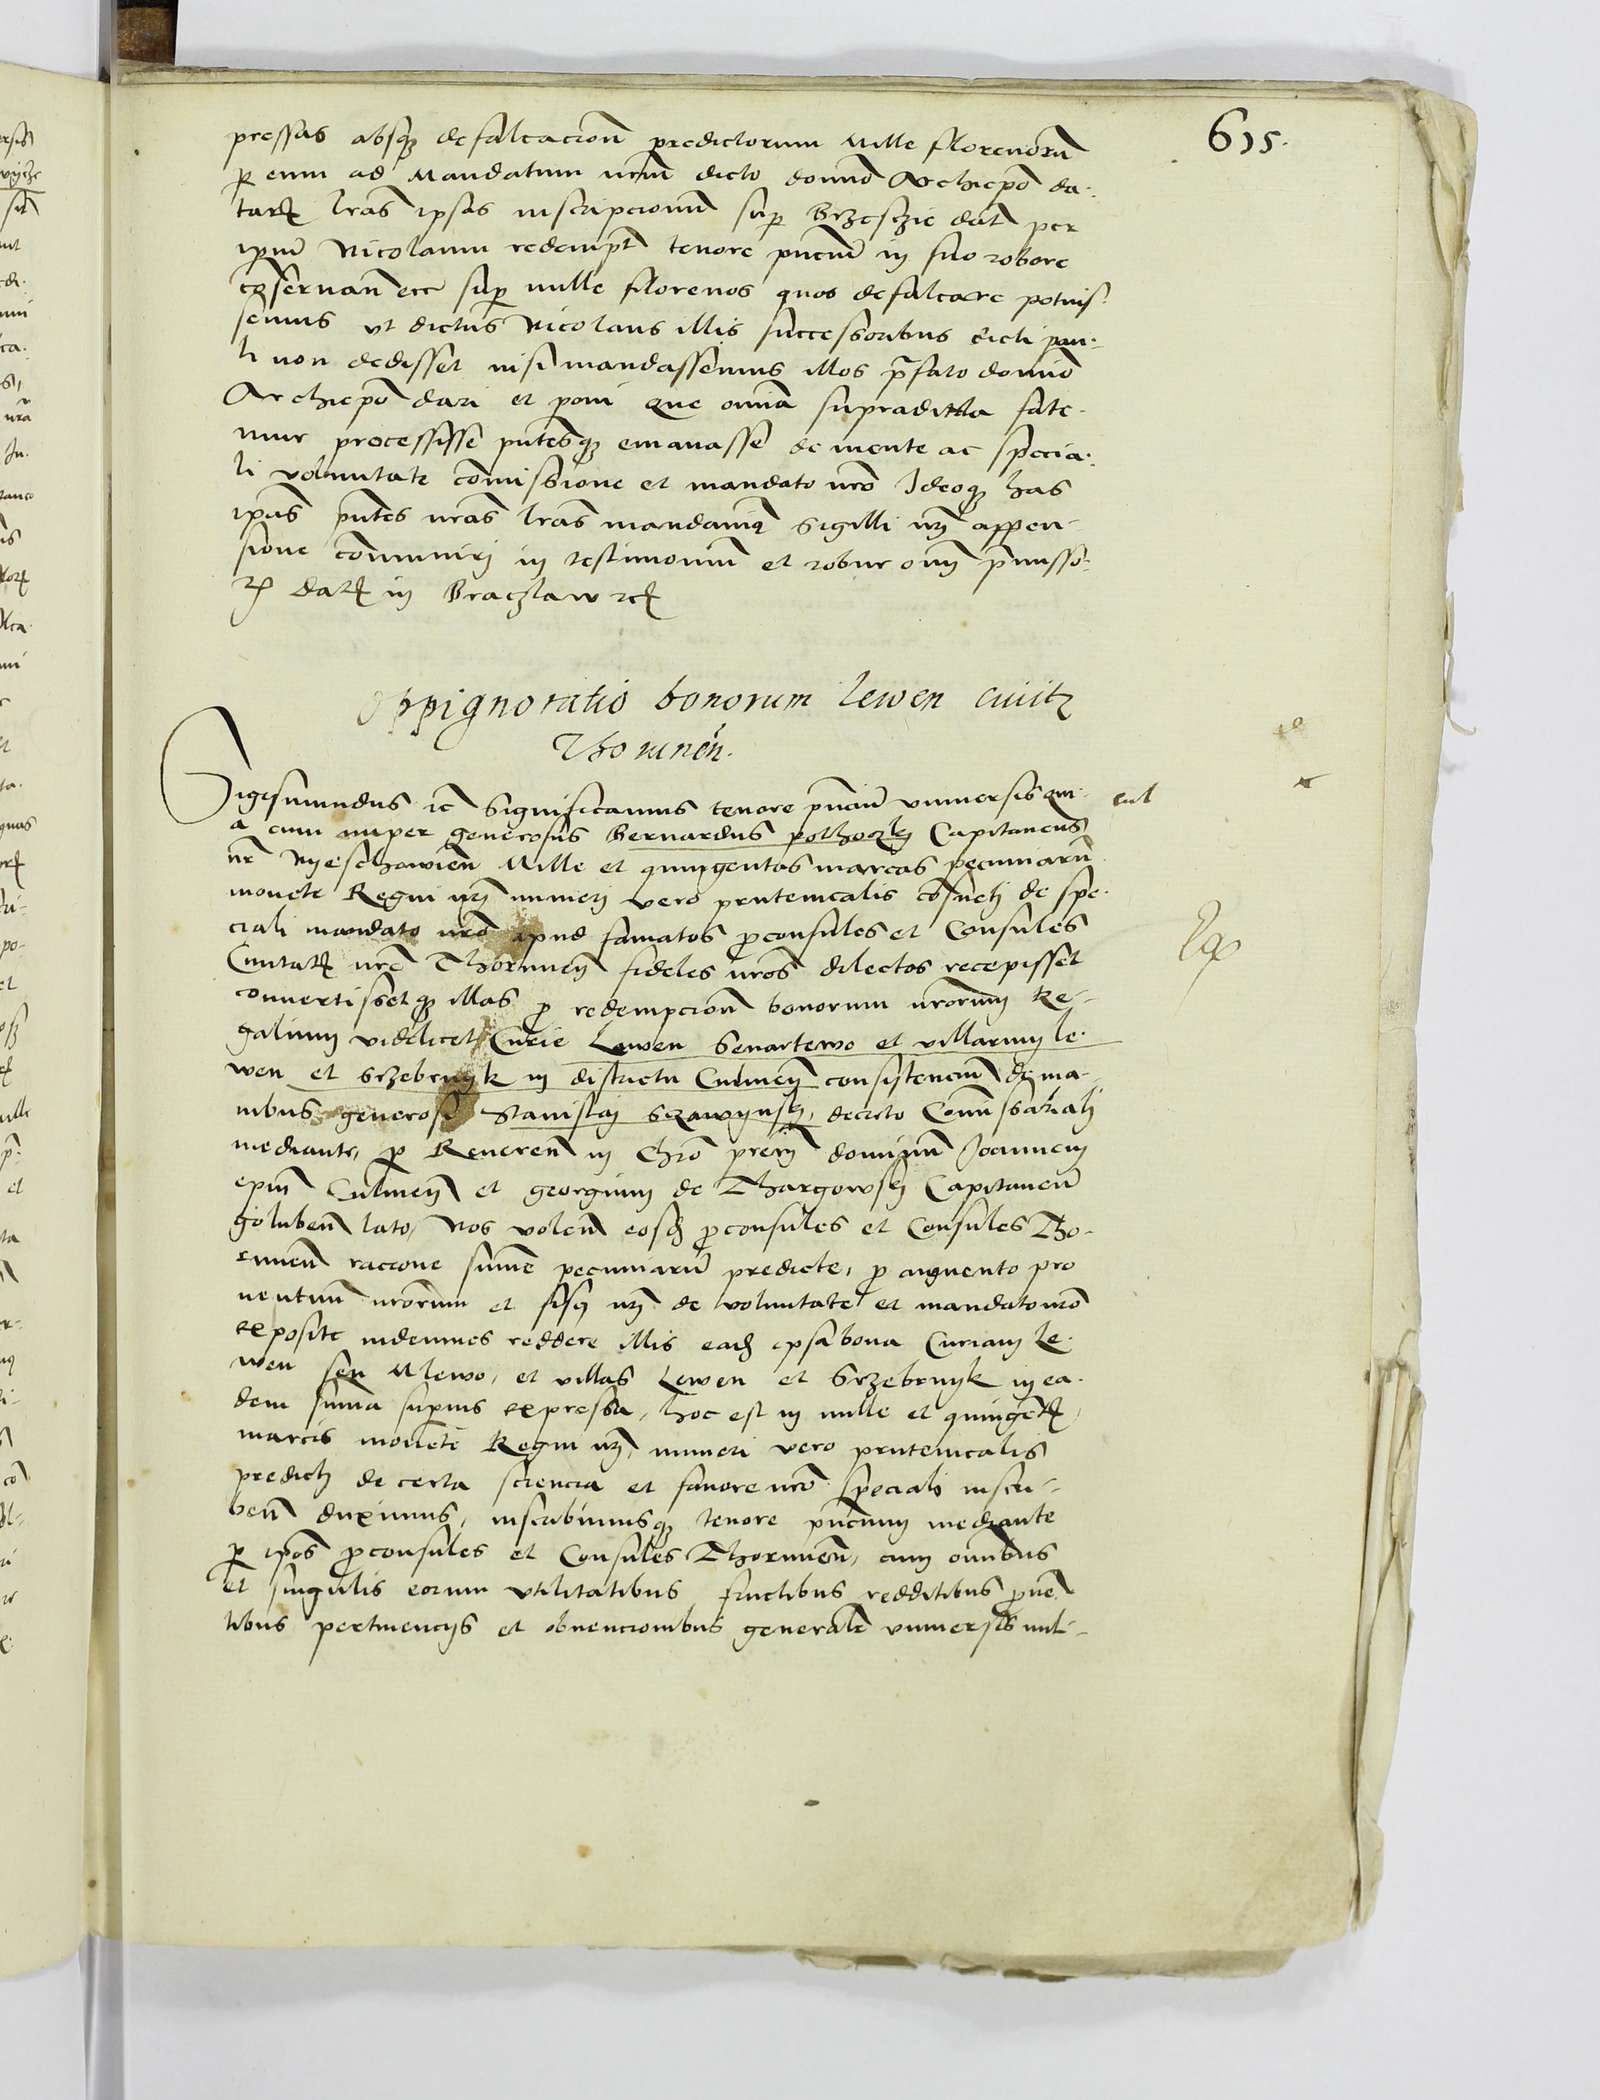 615.
pressas absq defalcacion predictorum Mille florenorum
p eum ad Mandatum nrm dicto domno Archiepo da-
tar lras ipsas inscripcionum sup Brzesczie dat per
ipm Nicolaum redempt tenore pntium in suo robore
conservan etc sup mille florenos quos defalcare potuis-
semus ut dictus Nicolaus illis successoribus dicti pau-
li non dedisset nisi mandassemus illos prefato domno
Archiepo dari et poni que omnia supradicta fate-
mur processisse pntesq emanasse de mente ac specia-
li voluntate comissione et mandato nro Ideoq has
ipas pntes nras lras mandavimq sigilli nri appen-
sione communiri in testimonium et robur omm premisso-
r dat in Braczlaw etc
Oppignoratio bonorum lewen civit
Thorunen.
Sigismundus etc Significamus tenore pntium universis Qui-
a cum nuper generosus Bernardus pothoczki Capitaneus
nr Nyeschowien Mille et quingentas marcas pecuniarum
monete Regni nri numeri vero prutenicalis consueti de spe-
ciali mandato nro apud famatos pconsules et Consules
Civitat nre Thorunen fideles nros dilectos recepisset
convertissetq illas p redempcion bonorum nrorum Re-
galium videlicet Curie Lewen Senartewo et villarum le-
wen et Srzebrnyk in districtu Culmen consistencium de ma-
nibus generosi Stanislai Szawynski, decreto Comissariali
mediante, p Reveren in Chro prem dominum Joannem
epm Culmen et georgium de Thargowsky Capitaneum
goluben lato, Nos volen eosd pconsules et Consules Tho-
runen racione summe pecuniarum predicte, p augmento pro
ventuum nrorum et fisci nri de voluntate et mandato nro
exposite indemnes reddere illis ead ipsa bona Curiam Le-
wen seu Mlewo, et villas Lewen et Srzebrnyk in ea-
dem summa superius expressa, hoc est in mille et quingent
marcis monete Regni nri, numeri vero prutenicalis
predicti de certa sciencia et favore nro speciali inscri-
ben duximus, inscribimusq tenore pntium mediante
p ipos pconsules et Consules Thorunen, cum omnibus
et singulis eorum utilitatibus fructibus redditibus proven
tibus pertinencys et obvencionibus generalr universis nul-